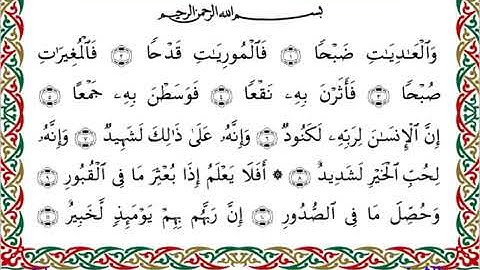 بِسْمِ اللَّهِ الرَّحْمَٰنِ الرَّحِيمِ
وَالْعَادِيَاتِ ضَبْحًا ١ فَالْمُورِيَاتِ قَدْحًا ٢ فَالْمُغِيرَاتِ
صُبْحًا ٣ فَأَثَرْنَ بِهِۦ نَقْعًا ٤ فَوَسَطْنَ بِهِۦ جَمْعًا ٥
إِنَّ الْإِنسَانَ لِرَبِّهِۦ لَكَنُودٌ ٦ وَإِنَّهُۥ عَلَىٰ ذَالِكَ لَشَهِيدٌ ٧ وَإِنَّهُۥ
لِحُبِّ الْخَيْرِ لَشَدِيدٌ ٨ ۞ أَفَلَا يَعْلَمُ إِذَا بُعْثِرَ مَا فِى الْقُبُورِ ٩
وَحُصِّلَ مَا فِى الصُّدُورِ ١٠ إِنَّ رَبَّهُم بِهِمْ يَوْمَئِذٍ لَّخَبِيرٌ ١١